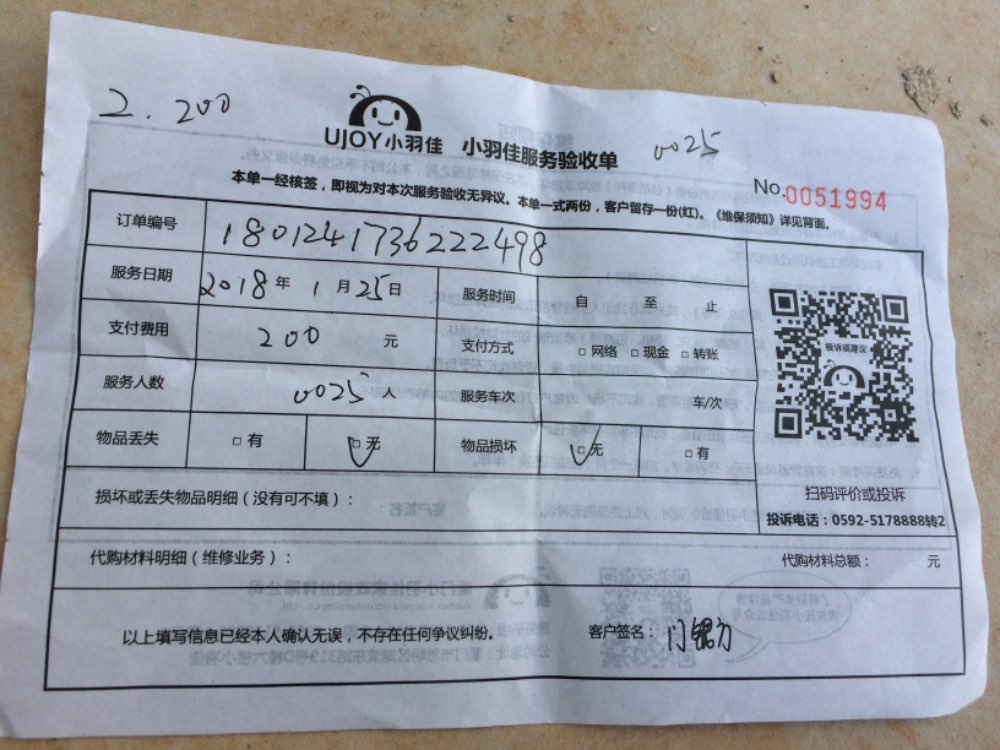 2. 200
UJOY小羽佳 小羽佳服务验收单
0025
本单一经核签，即视为对本次服务验收无异议。本单一式两份，客户留存一份(红)。《维保须知》详见背面。
No.0051994
订单编号 180124173622498
服务日期 2018年1月25日 服务时间 自 至 止
支付费用 200 元 支付方式 □网络 □现金 □转账
投诉或建议
服务人数 0025 人 服务车次 车/次
物品丢失 □有 □无 物品损坏 □无 □有
扫码评价或投诉
损坏或丢失物品明细（没有可不填）：
投诉电话：0592-5178888转2
代购材料明细（维修业务）： 代购材料总额： 元
以上填写信息已经本人确认无误，不存在任何争议纠纷。 客户签名：